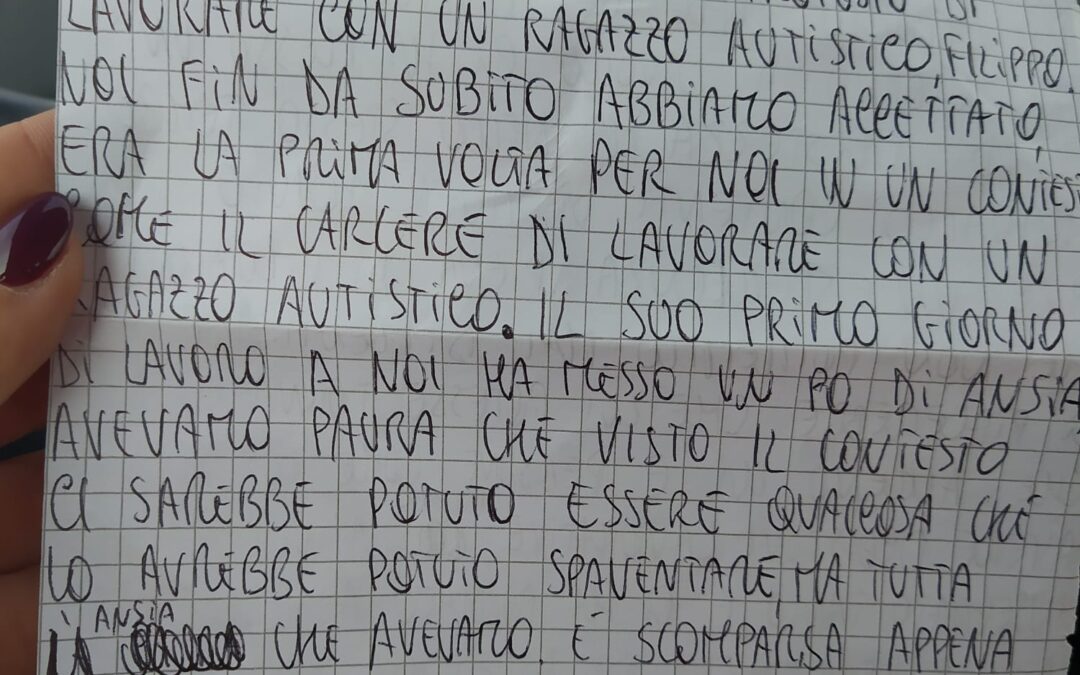 LAVORARE CON UN RAGAZZO AUTISTICO, FILIPPO.
NOI FIN DA SUBITO ABBIAMO ACCETTATO,
ERA LA PRIMA VOLTA PER NOI IN UN CONTEST
COME IL CARCERE DI LAVORARE CON UN
RAGAZZO AUTISTICO. IL SUO PRIMO GIORNO
DI LAVORO A NOI HA MESSO UN PO DI ANSIA
AVEVAMO PAURA CHE VISTO IL CONTESTO
CI SAREBBE POTUTO ESSERE QUALCOSA CHE
LO AVREBBE POTUTO SPAVENTARE, MA TUTTA
L'ANSIA CHE AVEVAMO È SCOMPARSA APPENA